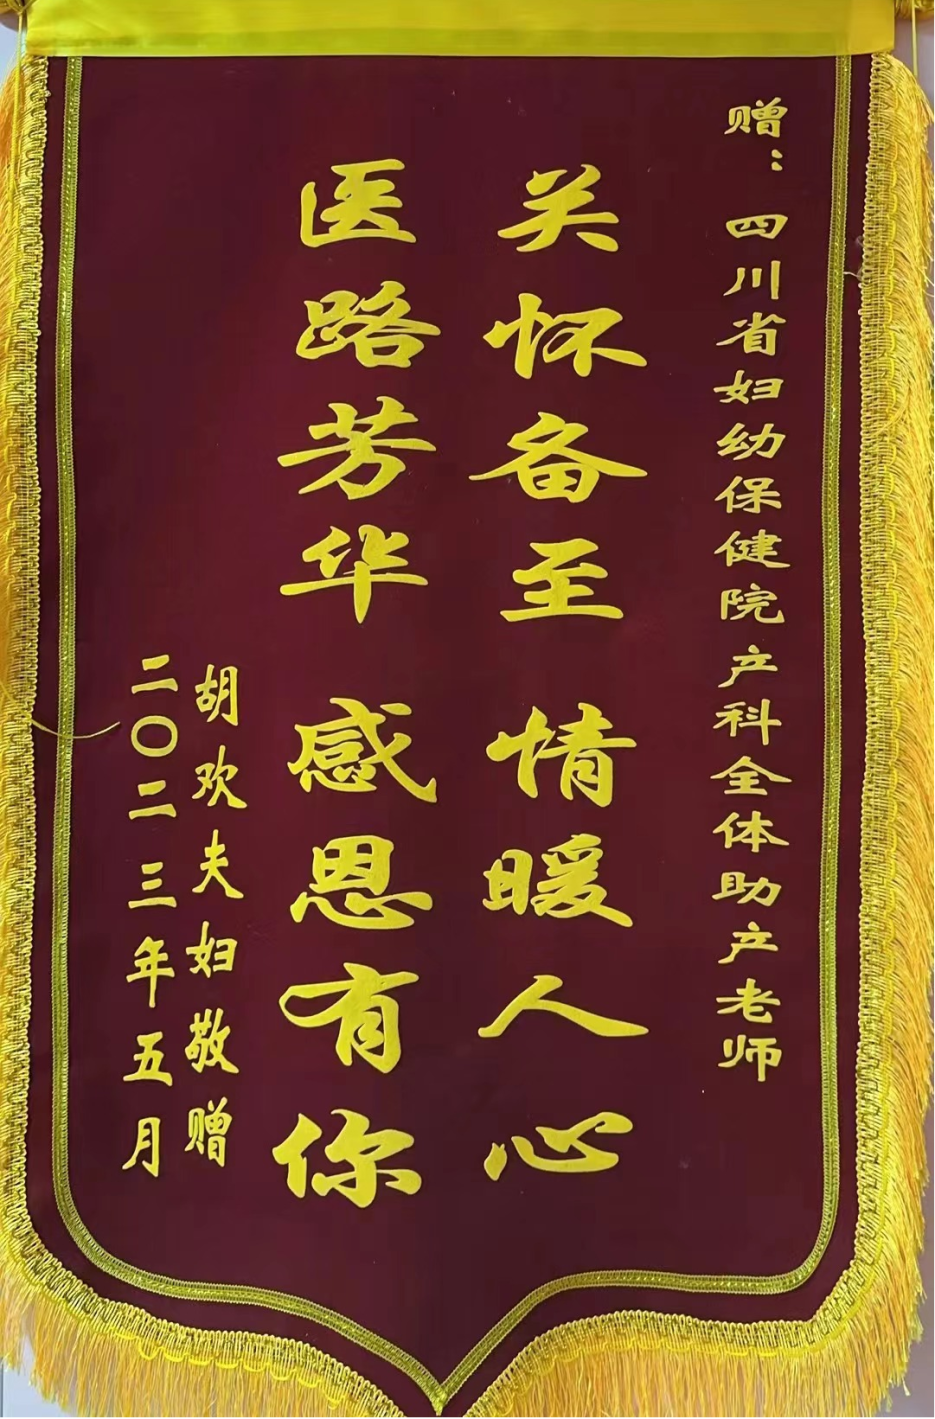 赠：四川省妇幼保健院产科全体助产老师
关怀备至 情暖人心
医路芳华 感恩有你
胡欢夫妇敬赠
二〇二三年五月